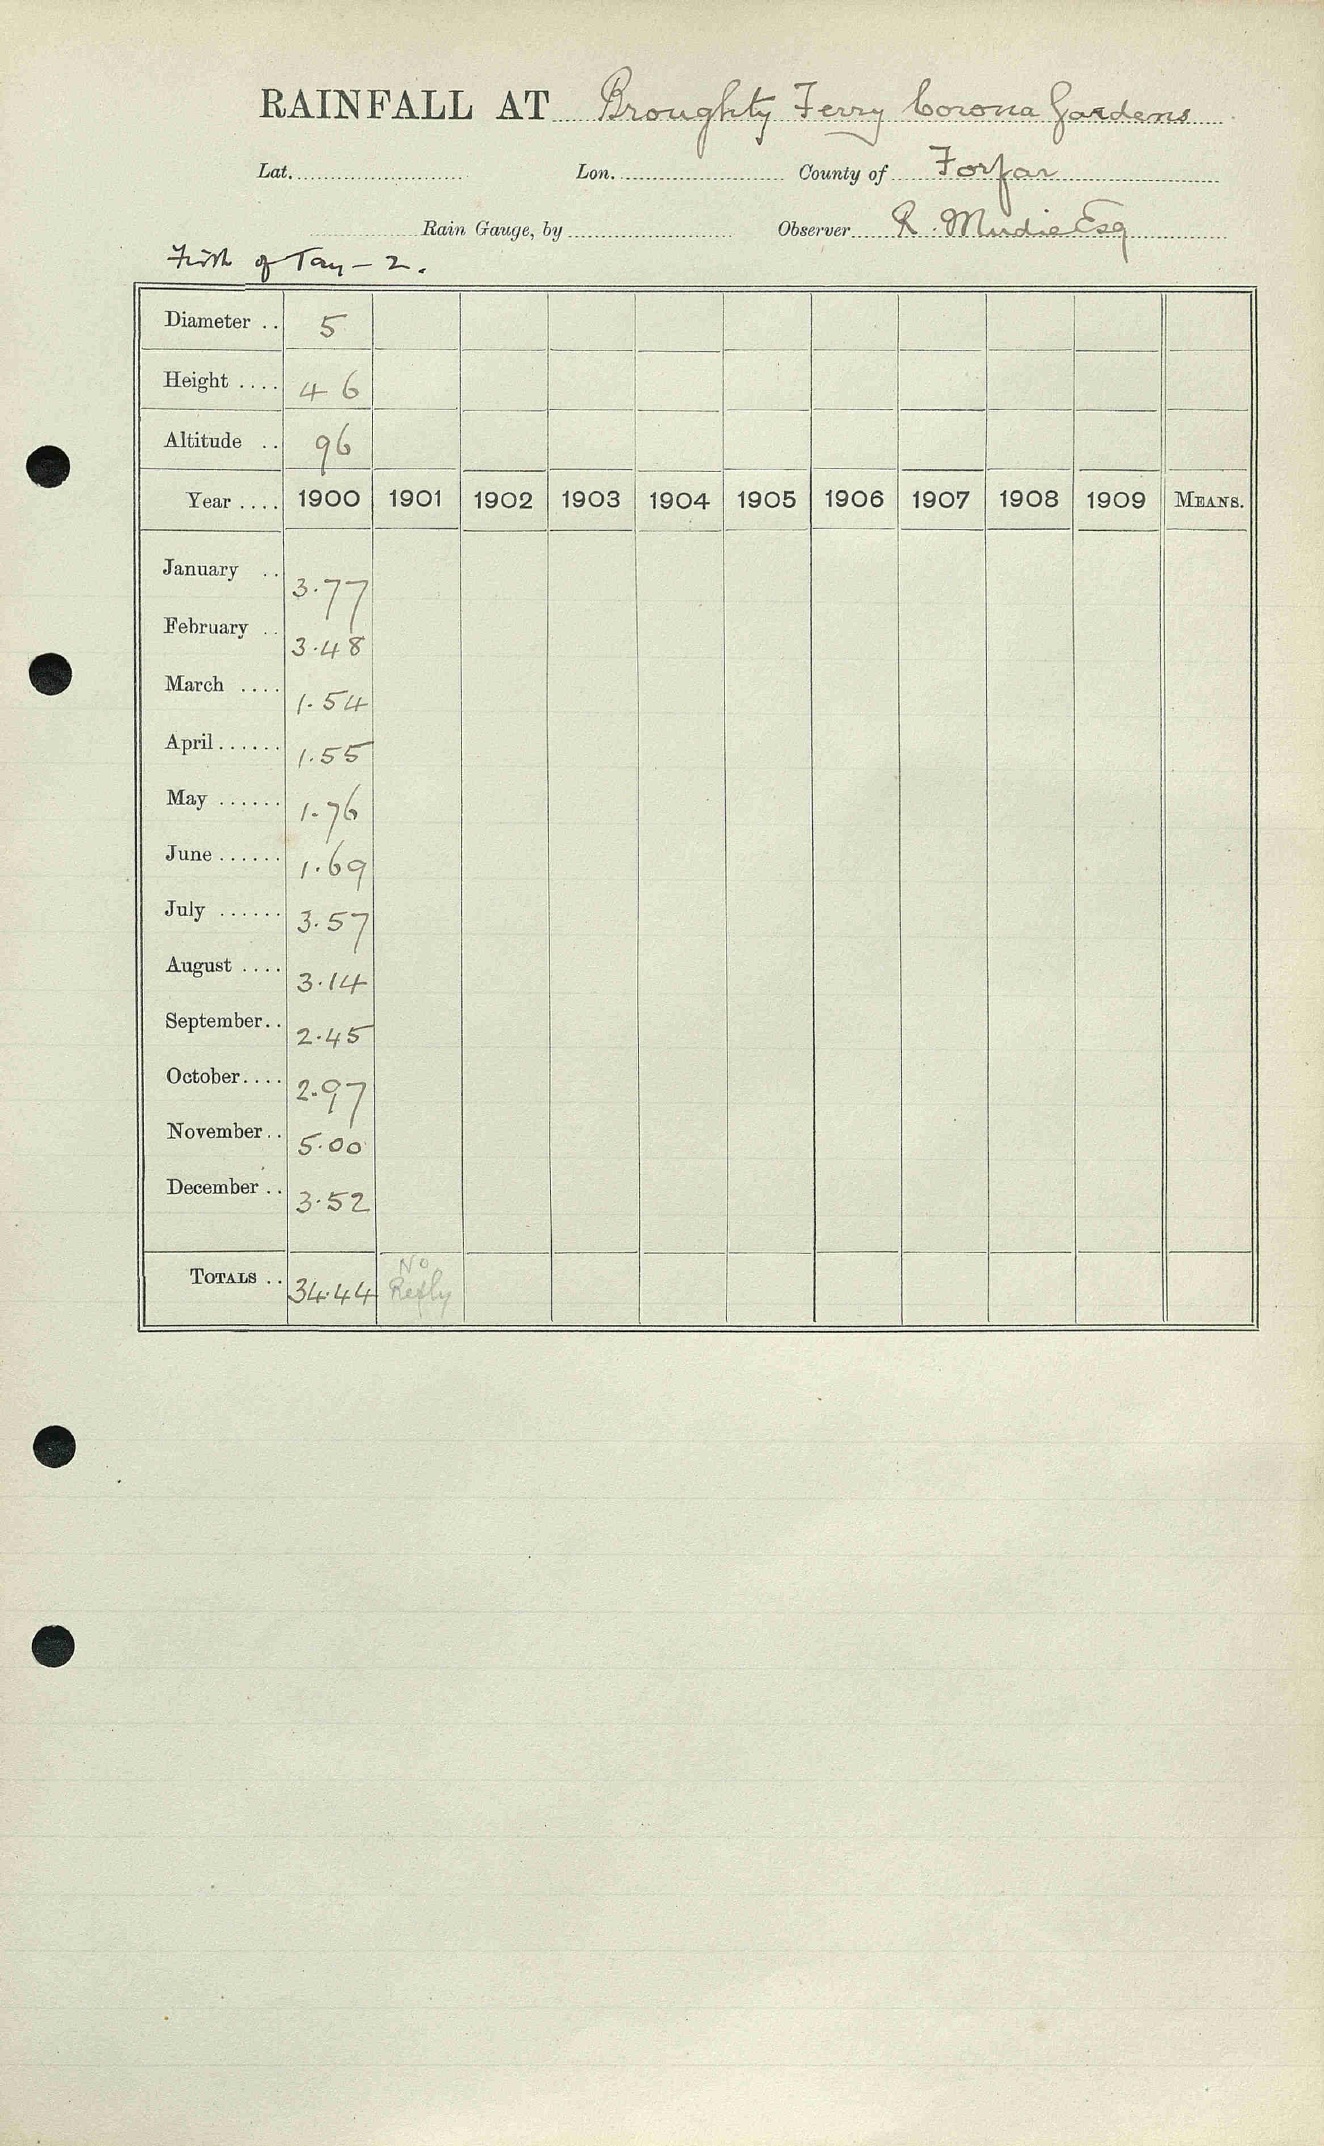 RAINFALL AT Broughty Ferry Corona Gardens
Lat. Lon. County of Forfar
Rain Gauge, by Observer R. Mudie Esq
Firth of Tay - 2.
Diameter .. 5
Height .... 4 6
Altitude .. 96
Year .... 1900 1901 1902 1903 1904 1905 1906 1907 1908 1909 MEANS.
January .. 3.77
February .. 3.48
March .... 1.54
April...... 1.55
May ...... 1.76
June...... 1.69
July ...... 3.57
August .... 3.14
September.. 2.45
October.... 2.97
November.. 5.00
December.. 3.52
TOTALS .. 34.44 No Reply